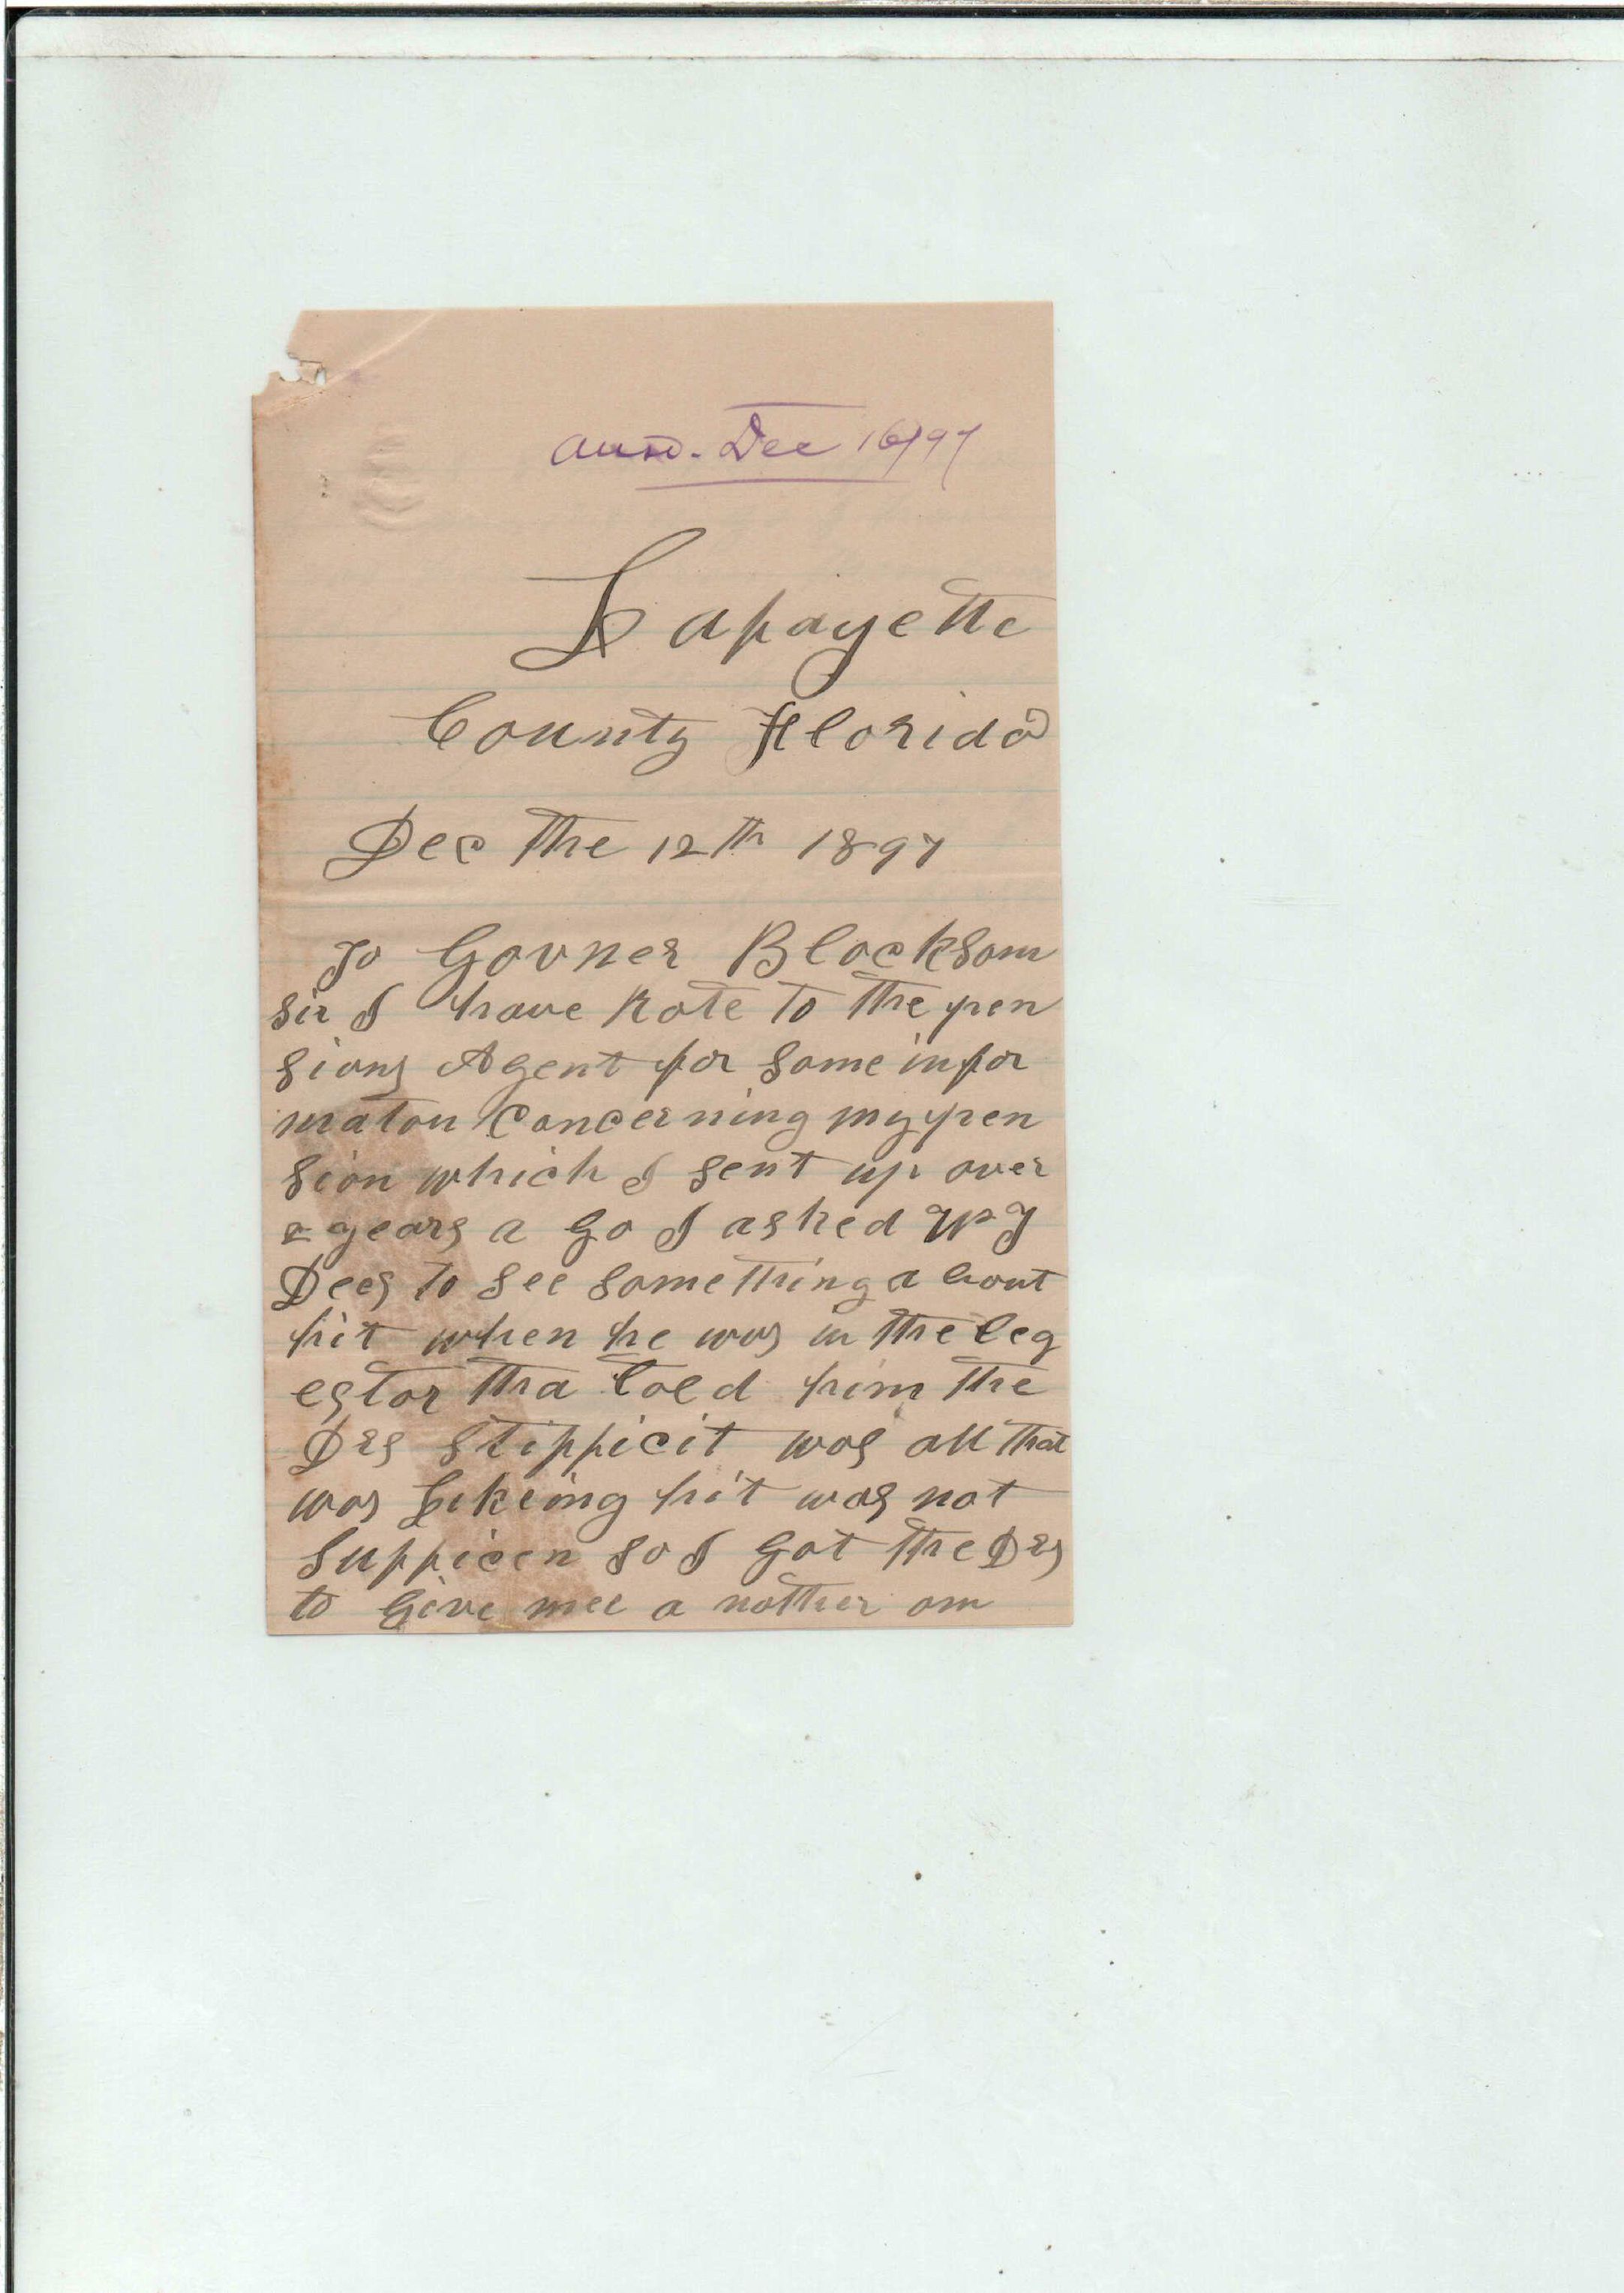 Answd. Dec 16/97
Lafayette
County Florida
Dec the 12th 1897
To Govner Blocksom
sir I have Rote to the pen
sions Agent for some infor
maton Concerning my pen
sion which I sent up over
2 years a go I asked
Dees to see something a bout
hit when he was in the leg
estor tha told him the
Drs stifficit was all that
was Likeing hit was not
sufficen so I got the Drs
to Give mee a nother om